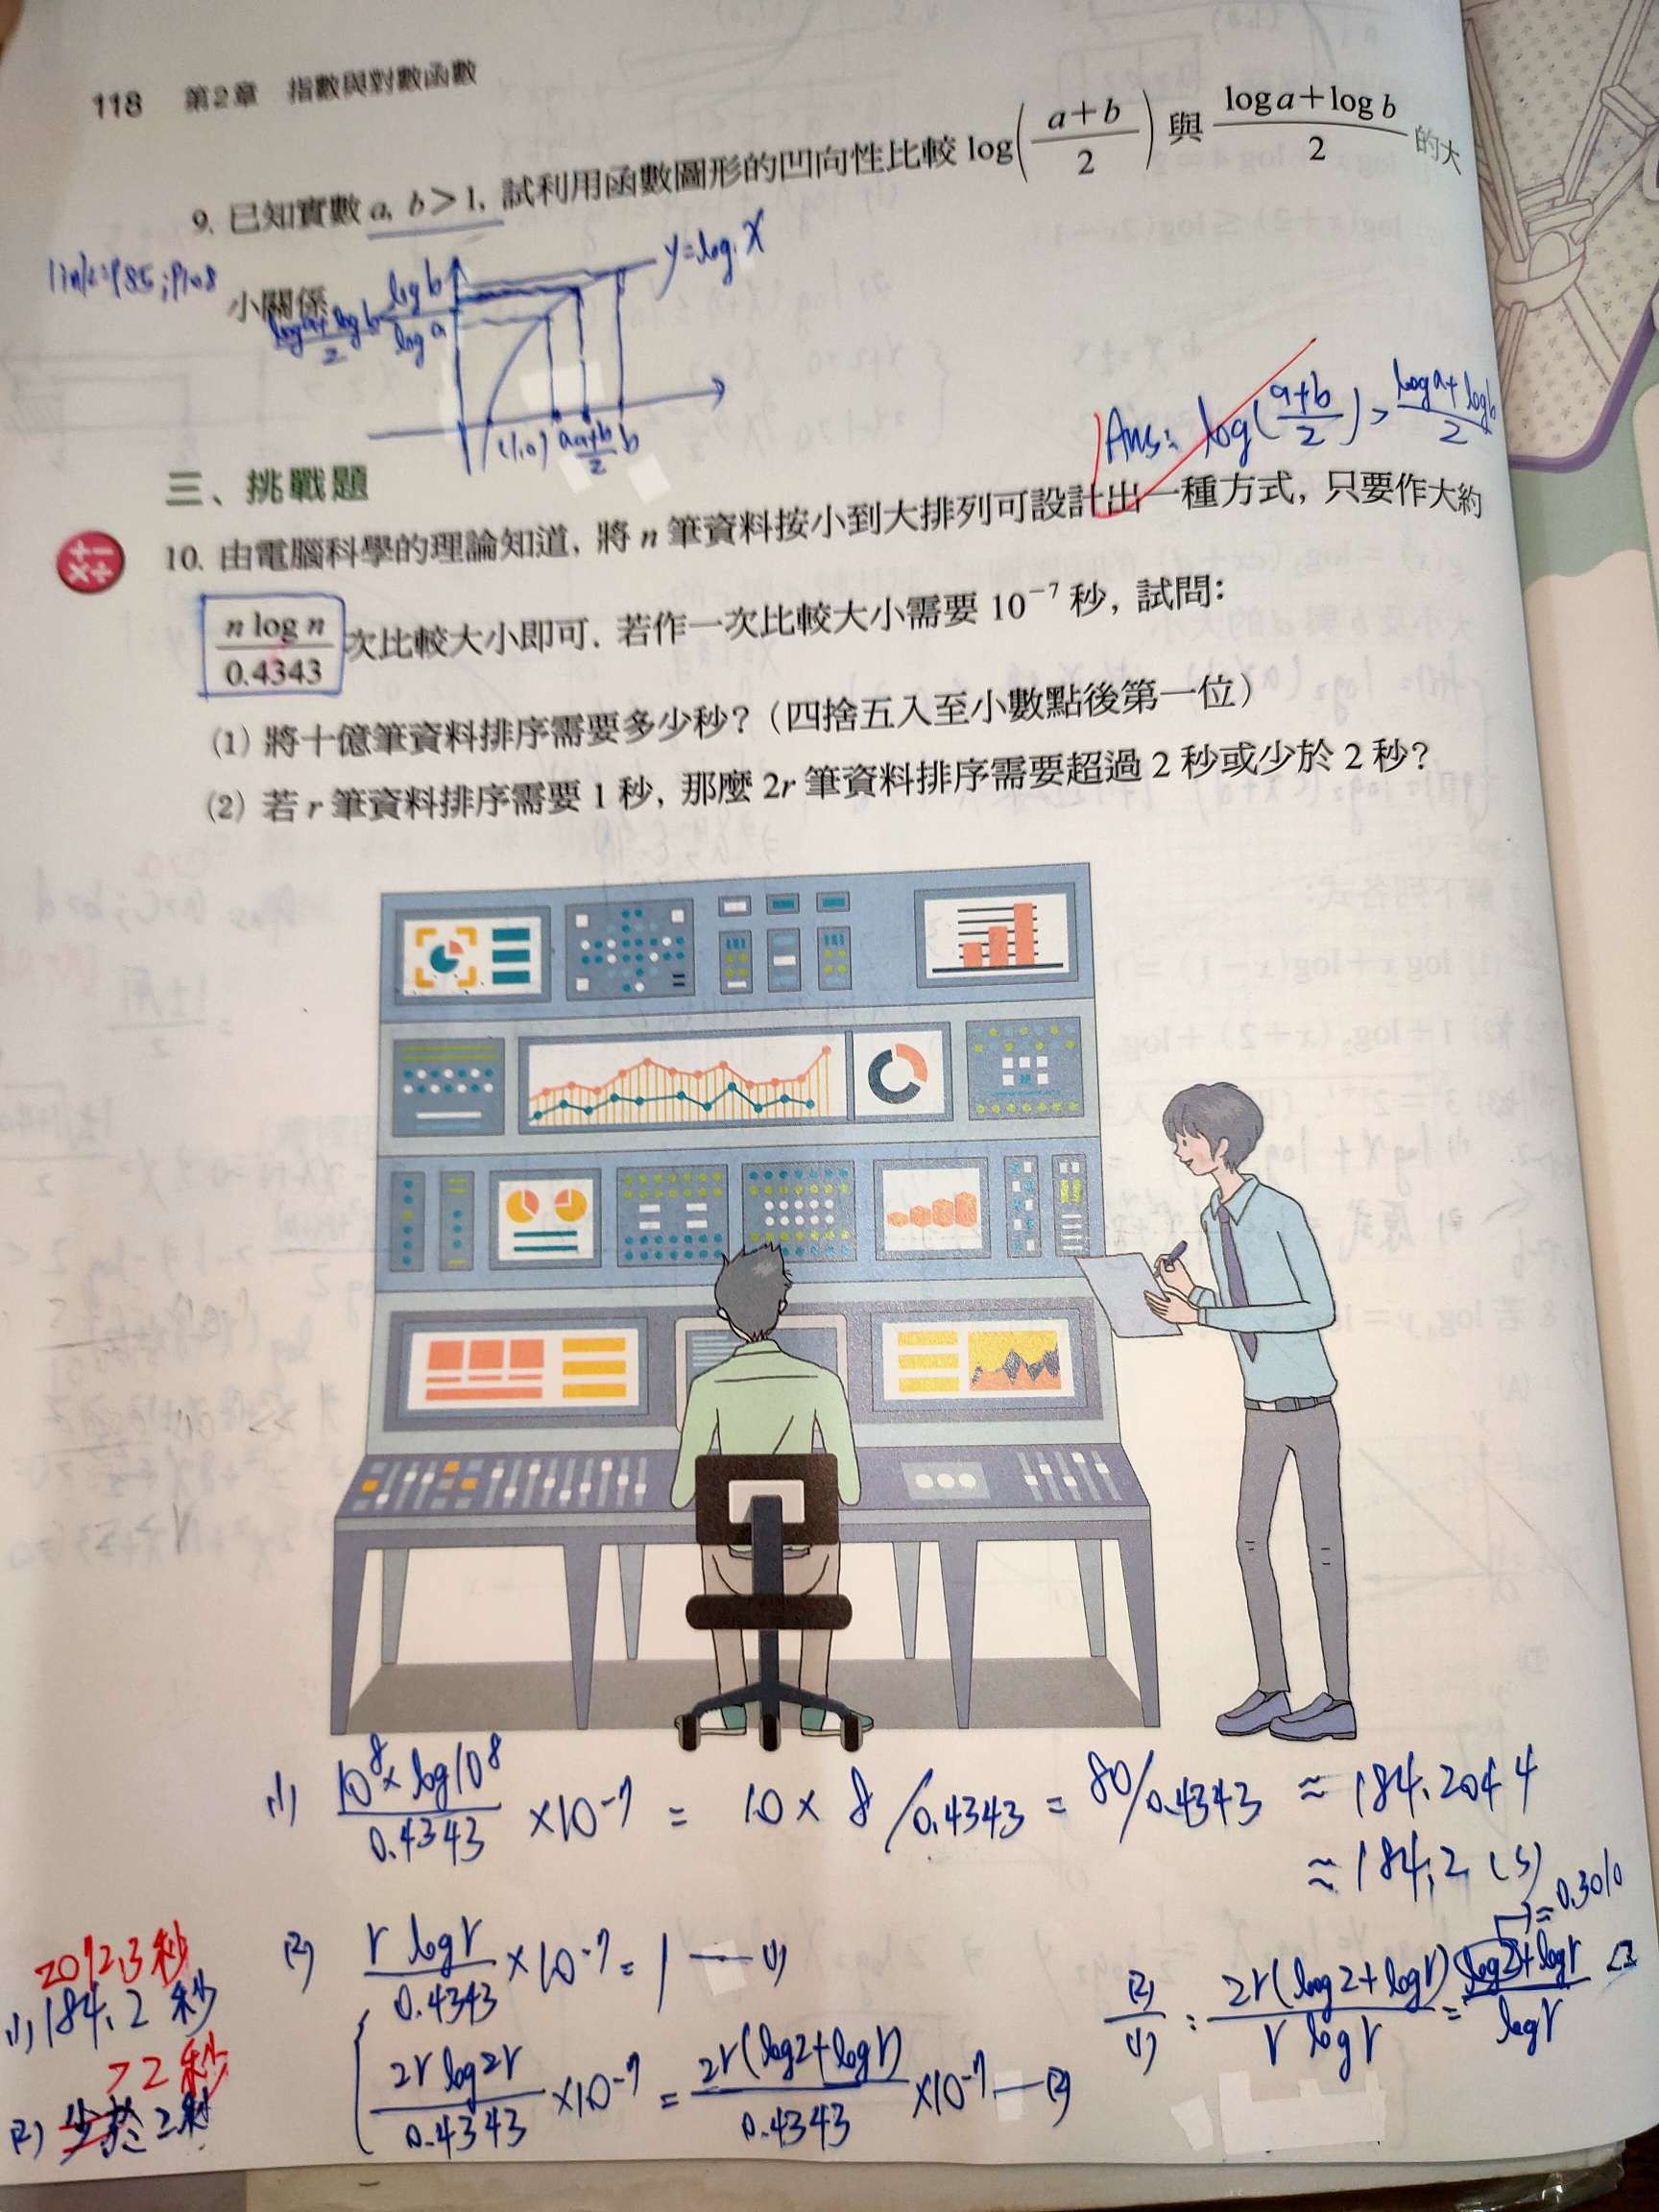 118 第2章 指數與對數函數
9. 已知實數 a, b>1, 試利用函數圖形的凹向性比較 log((a+b)/2) 與 (log a+log b)/2 的大
小關係.
y=log x
log b
log a
(log a+log b)/2
(1,0) a (a+b)/2 b
Ans: log((a+b)/2) > (log a+log b)/2
三、挑戰題
10. 由電腦科學的理論知道, 將 n 筆資料按小到大排列可設計出一種方式, 只要作大約
(n log n)/0.4343 次比較大小即可. 若作一次比較大小需要 10⁻⁷ 秒, 試問:
(1) 將十億筆資料排序需要多少秒?(四捨五入至小數點後第一位)
(2) 若 r 筆資料排序需要 1 秒, 那麼 2r 筆資料排序需要超過 2 秒或少於 2 秒?
(1) (10⁸×log10⁸)/0.4343 ×10⁻⁷ = 10×8/0.4343 = 80/0.4343 ≈ 184.2044
≈ 184.2 (s)
≈0.3010
(2) (r log r)/0.4343 ×10⁻⁷ = 1 — (1)
(2r log 2r)/0.4343 ×10⁻⁷ = 2r(log2+log r)/0.4343 ×10⁻⁷ — (2)
(2)/(1) : 2r(log2+log r)/(r log r) = (log2+log r)/log r
2072.3 秒
(1) 184.2 秒
>2 秒
(2) 少於 2秒